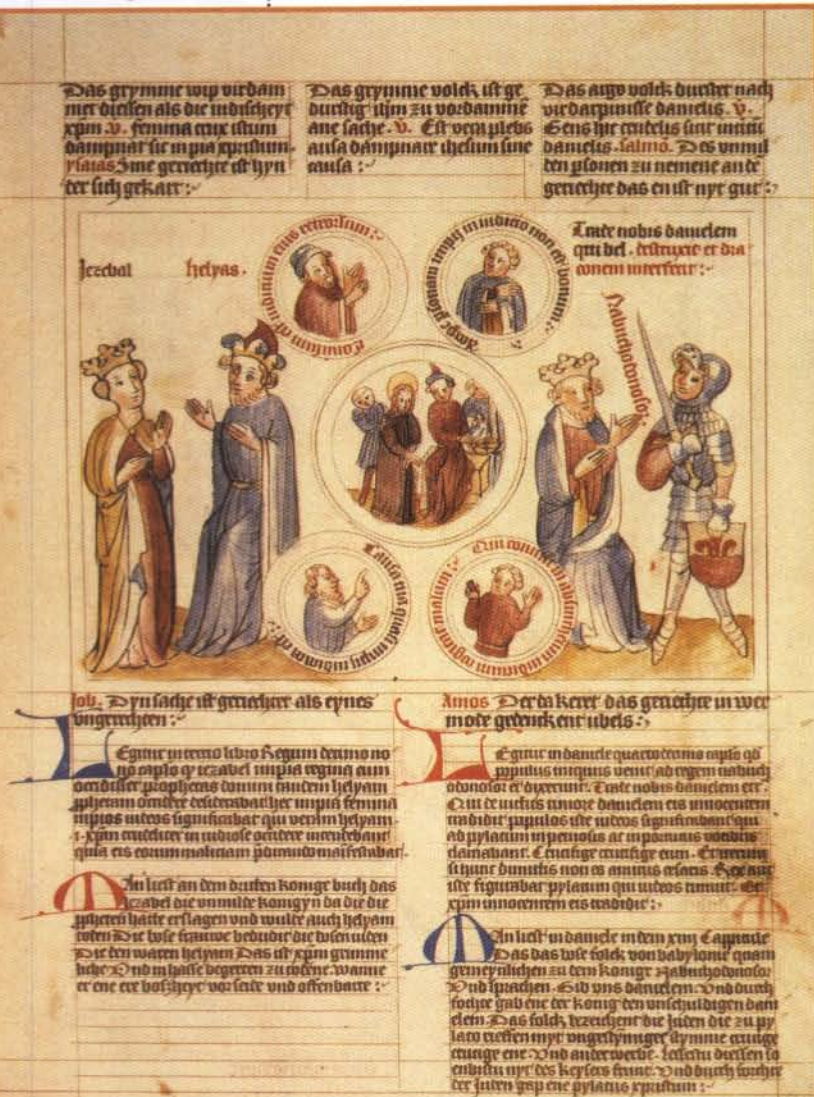 Das grymme wip virdam
met diessen als die iudischeyt
xpm. v. femina trux istum
dampnat sic impia xpristum.
ysaias Sine geriechte ist hyn
der sich gekart :
Das grymme volck ist ge
durstig ihm zu vordamme
ane sache. v. Est vera plebs
ausa dampnare ihesum sine
causa :
Das arge volck durstet nach
virdarpnisse danielis. v.
Gens hic crudelis furit
danielis. salmo. Des vnmil
den psonen zu nemene an de
geriechte das en ist nyt gut :
Jezebal
helyas.
iudicium eius retrorsum :
Accipe psonam impij in iudicio non est bonum :
Trade nobis danielem
qui bel. destruxit et dra
conem interfecit :
Nabuchodonosor
Causa tua quasi impij iudicata est :
Qui convertitis in absinthium iudicium
Job. Dyn sache ist geriechtet als eynes
vngerechten :
Amos Der da keret das geriechte in wer
mode gedenckent ubels :
Legitur in tercio libro Regum decimo no
no caplo q iezabel impia regina cum
occidisset prophetas domini tandem helyam
pphetam occidere desiderabat hec impia femina
impios iudeos significabat qui verum helyam
.i. xpm crudeliter in occidere intendebant
quia eis eorum maliciam pdicando manifestabat.
Man liest an dem dritten konige buch das
iezabel die vnmilde konigyn da die die
ppheten hatte erslagen vnd wulte auch helyam
toten Die bose frauwe bedudit die bosen iuden
Die den waren helyam Das ist xpm grymme
liche Vnd in hasse begerten zu totene. wanne
er ene ere boszheyt vor seide vnd offenbarte :
Legitur in daniele quarto decimo caplo qd
populus iniquus venit ad regem nabuch
odonosor et dixerunt. Trade nobis danielem etc.
Qui de iudeis timore danielem eis innocentem
tradidit populus iste iudeos significabat qui
ad pylatum inpetuosis ac inportunis vocibus
clamabant. Crucifige crucifige eum. Et iterum
si hunc dimittis non es amicus cesaris. Rex aut
iste figurabat pylatum qui iudeos timuit. et
xpm innocentem eis tradidit :
Man liest in daniele in dem xiiij Cappittele
Das das bose folck von babylonie quam
gemeynlichen zu dem konige Nabuchodonosor
Vnd sprachen. Gib vns danielem. Vnd durch
fochte gab ene der konig den vnschuldigen dani
elem. Das folck bezeichent die Juden die zu py
lato rieffen myt vngestymiger stymme crucige
crucige ene. Vnd anderwerbe. Lessestu diessen so
enbistu nyt des keysers frunt. Vnd durch forchte
der Juden gap ene pylatus xpristum :